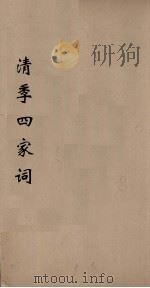 研狗
清季四家词
www.mtoou.info